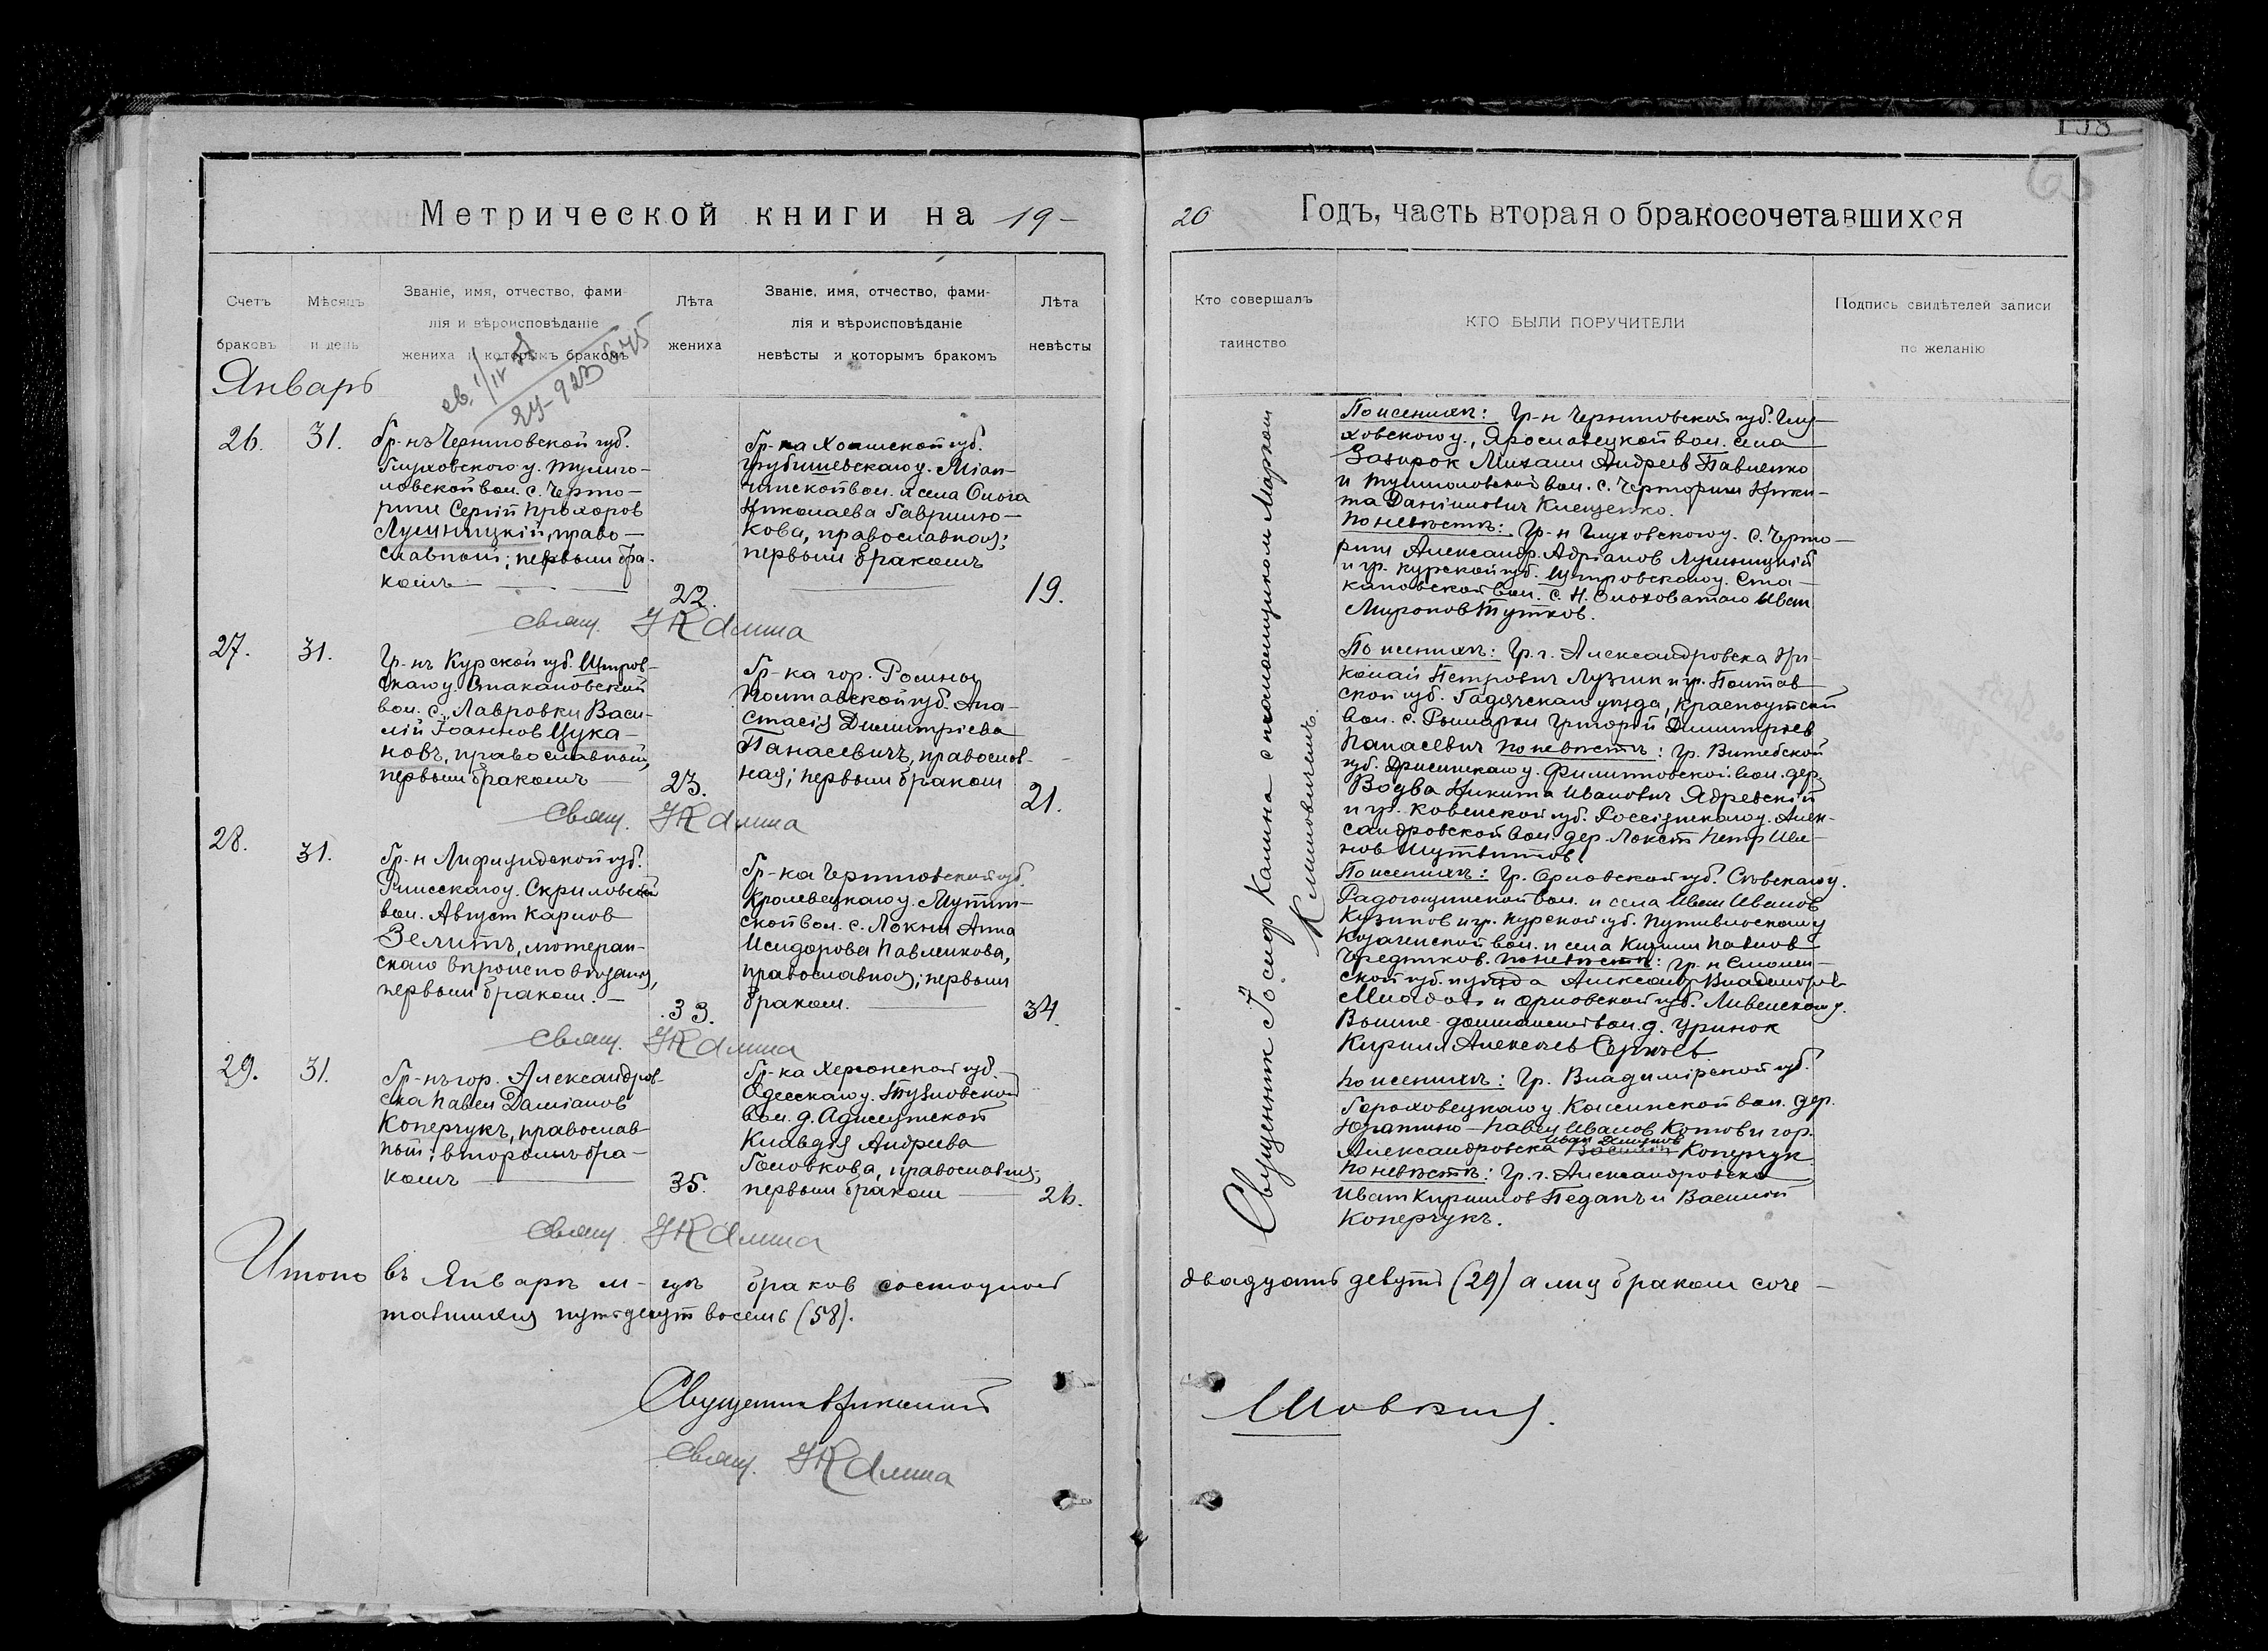 158
Метрической книги на 19-
20 Годъ, часть вторая о бракосочетавшихся
Счетъ
браковъ
Мѣсяцъ
и день
Званіе, имя, отчество, фами-
лія и вѣроисповѣданіе
жениха и которымъ бракомъ
Лѣта
жениха
Званіе, имя, отчество, фами-
лія и вѣроисповѣданіе
невѣсты и которымъ бракомъ
Лѣта
невѣсты
Кто совершалъ
таинство
КТО БЫЛИ ПОРУЧИТЕЛИ
Подпись свидѣтелей записи
по желанію
Январь
26. 31.
Гр-нъ Черниговской губ.
Глуховского у. Тулиго-
ловской вол. с. Черто-
рыги Сергій Прохоров
Лушницкій, право-
славный; первым бра-
комъ
22.
Гр-ка Холмской губ.
Грубишевскаго у.
вол. и села Ольга
Николаева Гаврилю-
кова, православная;
первым бракомъ
19.
свящ. ІКалина
27. 31.
Гр-нъ Курской губ. Щигров-
скаго у. Стакановской
вол. с. Лавровки Васи-
лій Іоаннов Цука-
новъ, православный,
первым бракомъ
23.
Гр-ка гор. Ромны
Полтавской губ. Ана-
стасія Димитріева
Панасевичъ, православ-
ная; первым браком
21.
свящ. ІКалина
28. 31.
Гр-н Лифляндской губ.
Рижскаго у.
вол. Август Карлов
Зелитъ, лютеран-
скаго вѣроисповѣданія,
первым браком.
33.
Гр-ка Черниговской губ.
Кролевецкаго у. Мутин-
ской вол. с. Локни Анна
Исидорова Павленкова,
православная; первым
браком.
34.
свящ. ІКалина
29. 31.
Гр-нъ гор. Александров-
ска Павел Даміанов
Коперчукъ, православ-
ный; вторымъ бра-
комъ
35.
Гр-ка Херсонской губ.
Одесскаго у. Тузловской
вол. д.
Клавдія Андреева
Головкова, православная,
первым браком
26.
свящ. ІКалина
Священник Іосиф Калина с псаломщиком Марком
Климовичемъ.
По женихѣ: Гр-н Черниговской губ. Глу-
ховского у., Ярославецкой вол. села
Зазирок Михаил Андреев Павленко
и Тулиголовской вол. с. Черторыги Ники-
та Даніилович Клещенко.
По невѣстѣ: Гр-н Глуховского у. с. Черто-
рыги Александр Адріанов Лушницкій
и гр. Курской губ. Щигровскаго у. Ста-
кановской вол. с. Н. Иван
Миронов Тутков.
По женихѣ: Гр. г. Александровска Ни-
колай Петрович Лузгин и гр. Полтав-
ской губ. Гадячскаго уѣзда,
вол. с. Рымарки Григорій Димитріев
Панасевич По невѣстѣ: Гр. Витебской
губ. Дрисенскаго у. Филиповской вол. дер.
Водва Никита Иванович Ядревскій
и гр. Ковенской губ. Россіянскаго у. Алек-
сандровской вол. дер. Локст Петр Ива-
нов
По женихѣ: Гр. Орловской губ. Сѣвскаго у.
Радогощинской вол. и села Иван Иванов
Кузинов и гр. Курской губ. Путивльскаго у
Казаченской вол. и села Кирилл Павлов
По невѣстѣ: Гр-н Смолен-
ской губ. и уѣзда Александр Владиміров
и Орловской губ. Ливенскаго у.
вол. д. Уринок
Кирилл Алексѣев Сергѣев
По женихѣ: Гр. Владимірской губ.
Гороховецкаго у. Кожинской вол. дер.
Павел Иванов Котов и гор.
Иван Даміанов
Александровска Василій Коперчук
По невѣстѣ: Гр. г. Александровска
Иван Кириллов Педанъ и Василій
Коперчукъ.
Итого въ Январѣ м-цѣ браков состоялось двадцать девять (29) а лиц браком соче-
тавшихся пятьдесят восемь (58).
Священник Николай
свящ. ІКалина